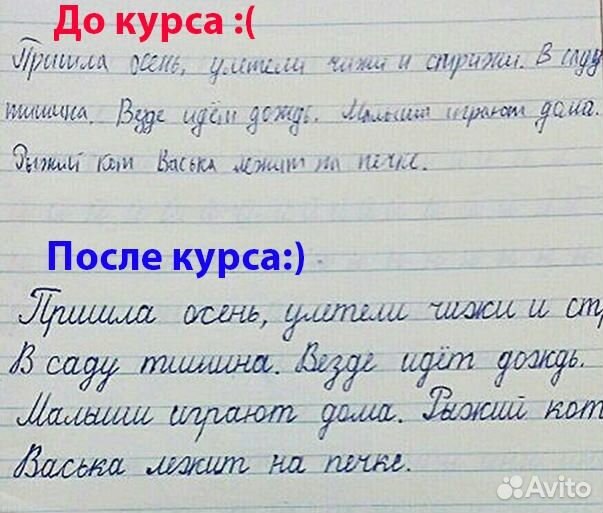 До курса :(
Пришла осень, улетели чижи и стрижи. В саду
тишина. Везде идёт дождь. Малыши играют дома.
Рыжий кот Васька лежит на печке.
После курса:)
Пришла осень, улетели чижи и стр
В саду тишина. Везде идёт дождь.
Малыши играют дома. Рыжий кот
Васька лежит на печке.
Avito